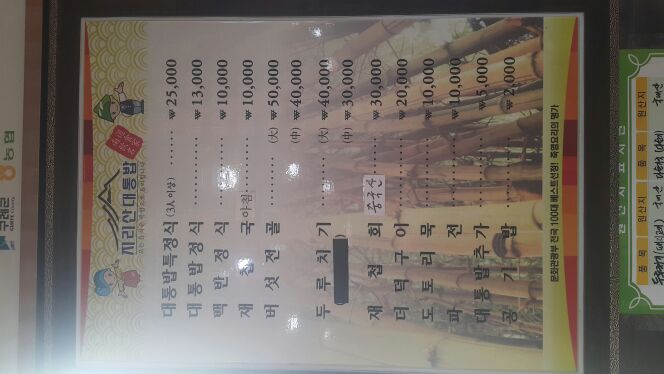 지리산대통밥
대통밥특정식 (3人이상) ········ ₩ 25,000
대통밥정식 ········ ₩ 13,000
백반정식 ········ ₩ 10,000
재첩국 아침 ········ ₩ 10,000
버섯전골 ········ (大) ₩ 50,000
(中) ₩ 40,000
두루치기 ········ (大) ₩ 40,000
(中) ₩ 30,000
재첩회 중국산 ········ ₩ 30,000
더덕구이 ········ ₩ 20,000
도토리묵 ········ ₩ 10,000
파전 ········ ₩ 10,000
대통밥추가 ········ ₩ 5,000
공기밥 ········ ₩ 2,000
문화관광부 전국 100대 베스트선정! 죽염요리의 명가
구례군
농협
원산지 표시판
품목 원산지 품목 원산지